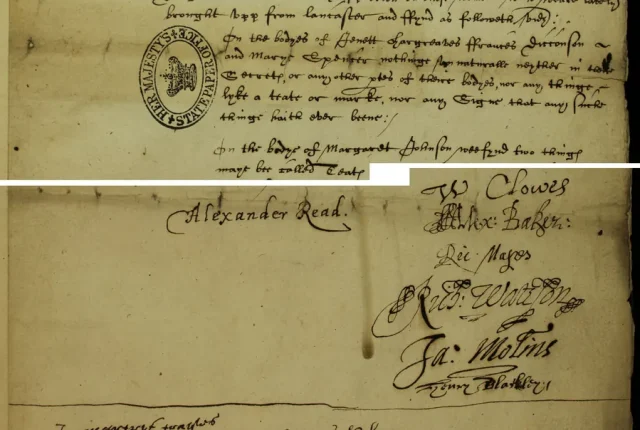 brought vpp from lancaster and ffynd as followeth vizt:
HER MAJESTY'S STATE PAPER OFFICE
On the bodyes of Jenett Hargreaves ffrances Dicconson
and Marye Spencer nothinge vnnaturalle neyther in their
Secrets, or any other ptes of theire bodyes, nor any thinge
lyke a teate or marke, nor any Signe that any suche
thinge haith ever beene:/
On the bodye of Margaret Johnson wee fynd two things
maye bee called Teats
W Clowes
Alexander Read.
Alex: Baker:
Ric: Mapes
Rich: Watson
Ja: Molins
Henry Blackley